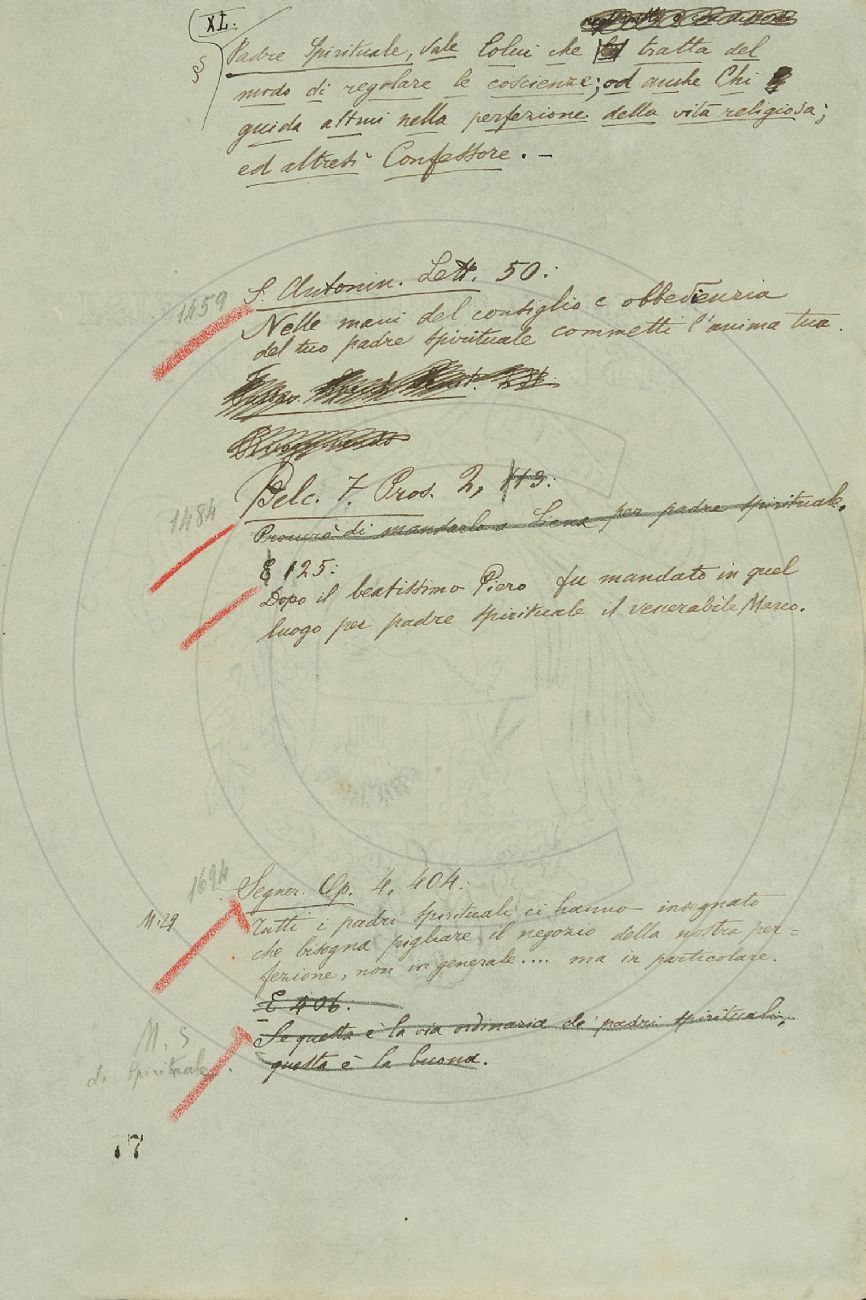 XL.
§
Padre Spirituale, vale Colui che tratta del
modo di regolare le coscienze; od anche Chi
guida altrui nella perfezione della vita religiosa;
ed altresì Confessore. –
1459
S. Antonin. Lett. 50:
Nelle mani del consiglio e obbedienzia
del tuo padre spirituale commetti l'anima tua.
1484
Belc. F. Pros. 2, 113:
Procurò di mandarlo a Siena per padre spirituale.
E 125:
Dopo il beatissimo Piero fu mandato in quel
luogo per padre spirituale il venerabile Marco.
1694
Segner. Op. 4, 404:
M.29
Tutti i padri spirituali ci hanno insegnato
che bisogna pigliare il negozio della nostra per=
fezione, non in generale.... ma in particolare.
E 406:
Se questa è la via ordinaria de' padri spirituali,
questa è la buona.
M. S
di Spirituale.
17